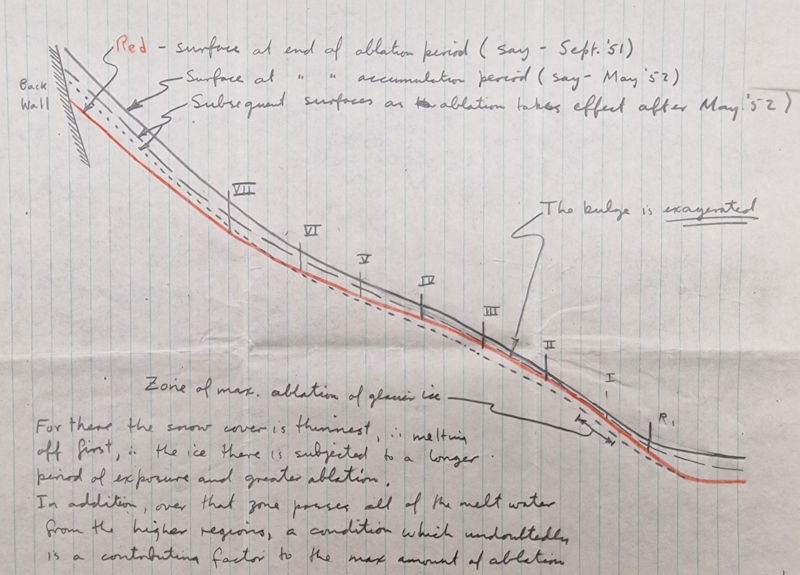 Red - surface at end of ablation period (say - Sept. '51)
Surface at " " accumulation period (say - May '52)
Subsequent surfaces as ablation takes effect after May '52)
Back
Wall
VII
The bulge is exagerated
VI
V
IV
III
II
I
R1
Zone of max. ablation of glacier ice
For there the snow cover is thinnest, ∴ melting
off first, ∴ the ice there is subjected to a longer
period of exposure and greater ablation.
In addition, over that zone passes all of the melt water
from the higher regions, a condition which undoubtedly
is a contributing factor to the max amount of ablation